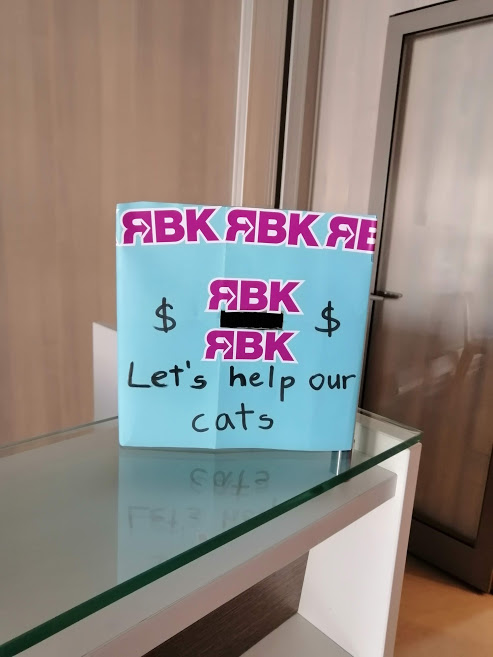 ЯBK ЯBK ЯB
ЯBK
$ $
ЯBK
Let's help our
cats